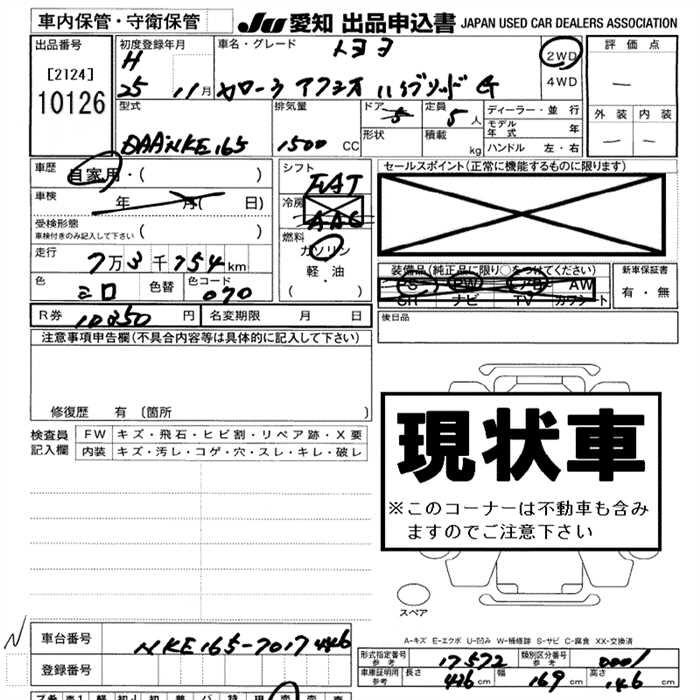 車内保管・守衛保管 JU 愛知 出品申込書 JAPAN USED CAR DEALERS ASSOCIATION
出品番号 [2124] 10126
初度登録年月 H 25 11月
車名・グレード トヨタ カローラ アクシオ ハイブリッド G
2WD 4WD
評価点 —
外装 内装 — —
型式 DAA-NKE165
排気量 1500 CC
ドア 5 形状
定員 5人 積載 kg
ディーラー・並行
モデル年式 年
ハンドル 左・右
車歴 自家用・( )
車検 年 月( 日)
受検形態 車検付きのみ記入して下さい ( )
走行 7万3千754km
色 シロ 色替 色コード 070
シフト FAT
冷房 AAC
燃料 ガソリン 軽・油 ( ・ )
セールスポイント(正常に機能するものに限ります)
装備品(純正品に限り○をつけてください)
PS PW AB AW
SR ナビ TV カワシート
新車保証書 有・無
R券 10250 円 名変期限 月 日
後日品
注意事項申告欄(不具合内容等は具体的に記入して下さい)
修復歴 有 〔箇所 〕
検査員記入欄
FW キズ・飛石・ヒビ割・リペア跡・X要
内装 キズ・汚レ・コゲ・穴・スレ・キレ・破レ
現状車
※このコーナーは不動車も含みますのでご注意下さい
スペア
A-キズ E-エクボ U-凹み W-補修跡 S-サビ C-腐食 XX-交換済
車台番号 NKE165-7017446
登録番号
形式指定番号 参考 17572 類別区分番号 参考 0001
車庫証明用 参考 長さ 436cm 幅 169cm 高さ 146cm